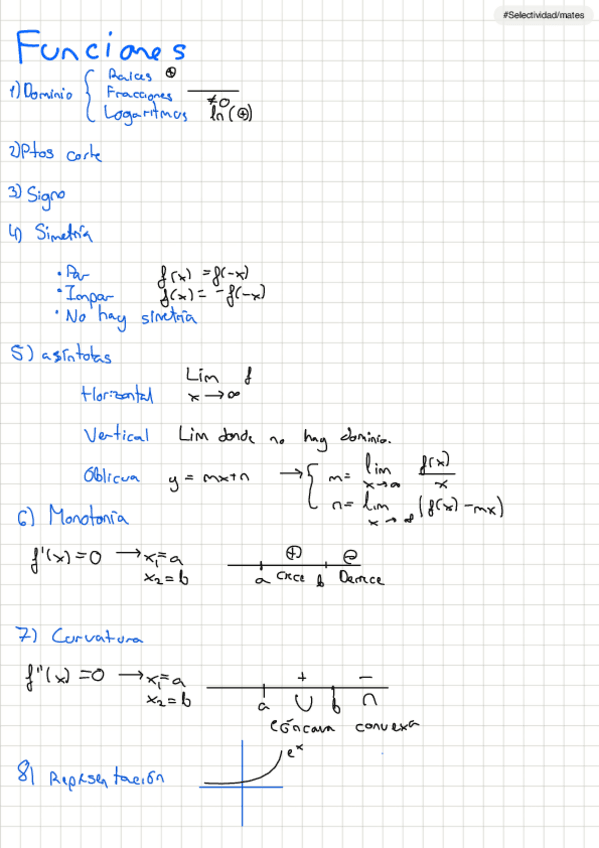 #Selectividad/mates
Funciones
1) Dominio { Raíces ⊕
Fracciones —/≠0
Logaritmos ln(⊕)
2) Ptos corte
3) Signo
4) Simetría
• Par f(x) = f(-x)
• Impar f(x) = -f(-x)
• No hay simetría
5) asíntotas
Horizontal Lim x→∞ f
Vertical Lim donde no hay dominio.
Oblicua y = mx+n → { m = lim x→∞ f(x)/x
n = lim x→∞ (f(x) - mx)
6) Monotonía
f'(x) = 0 → x₁ = a
x₂ = b
⊕ ⊖
a Crece b Decrece
7) Curvatura
f''(x) = 0 → x₁ = a
x₂ = b
+ −
a ∪ b ∩
cóncava convexa
8) Representación
eˣ